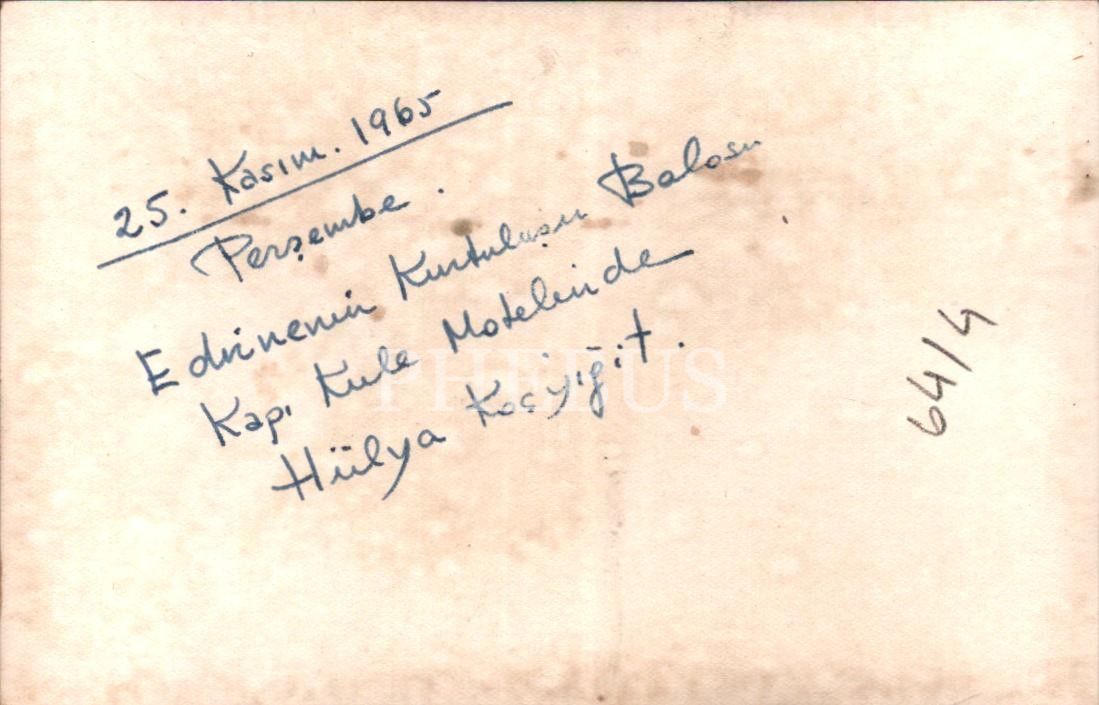 25. Kasım. 1965
Perşembe.
Edirnenin Kurtuluşu Balosu
Kapı Kule Motelinde
Hülya Koçyiğit.
PHEBUS
64/4